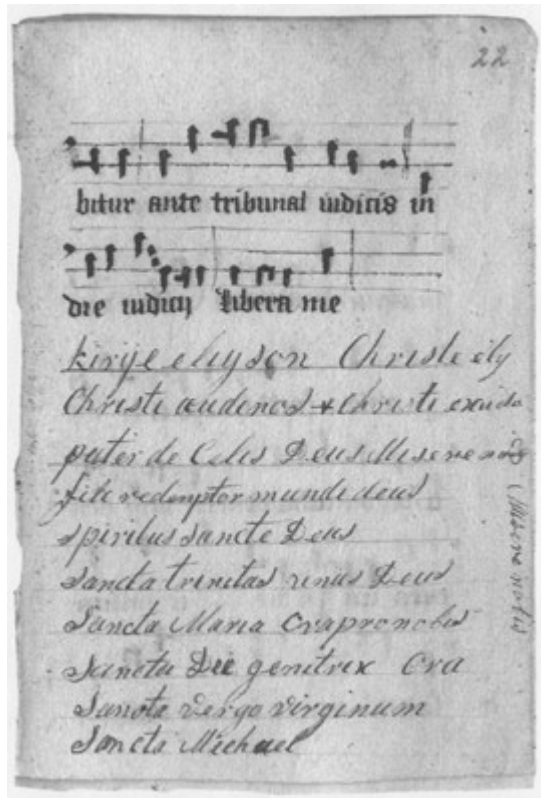 22
bitur ante tribunal iudicis in
die iudicij libera me
kirije eleyson Christe ely
Christi audinos + Christi exaudi
pater de Celis Deus Misere nobis
fili redemptor mundi deus
spiritus sancte Deus
sancta trinitas unus Deus
Sancta Maria Orapronobis
Sancta Dei genitrix Ora
Sancta Vergo virginum
Sancte Michael